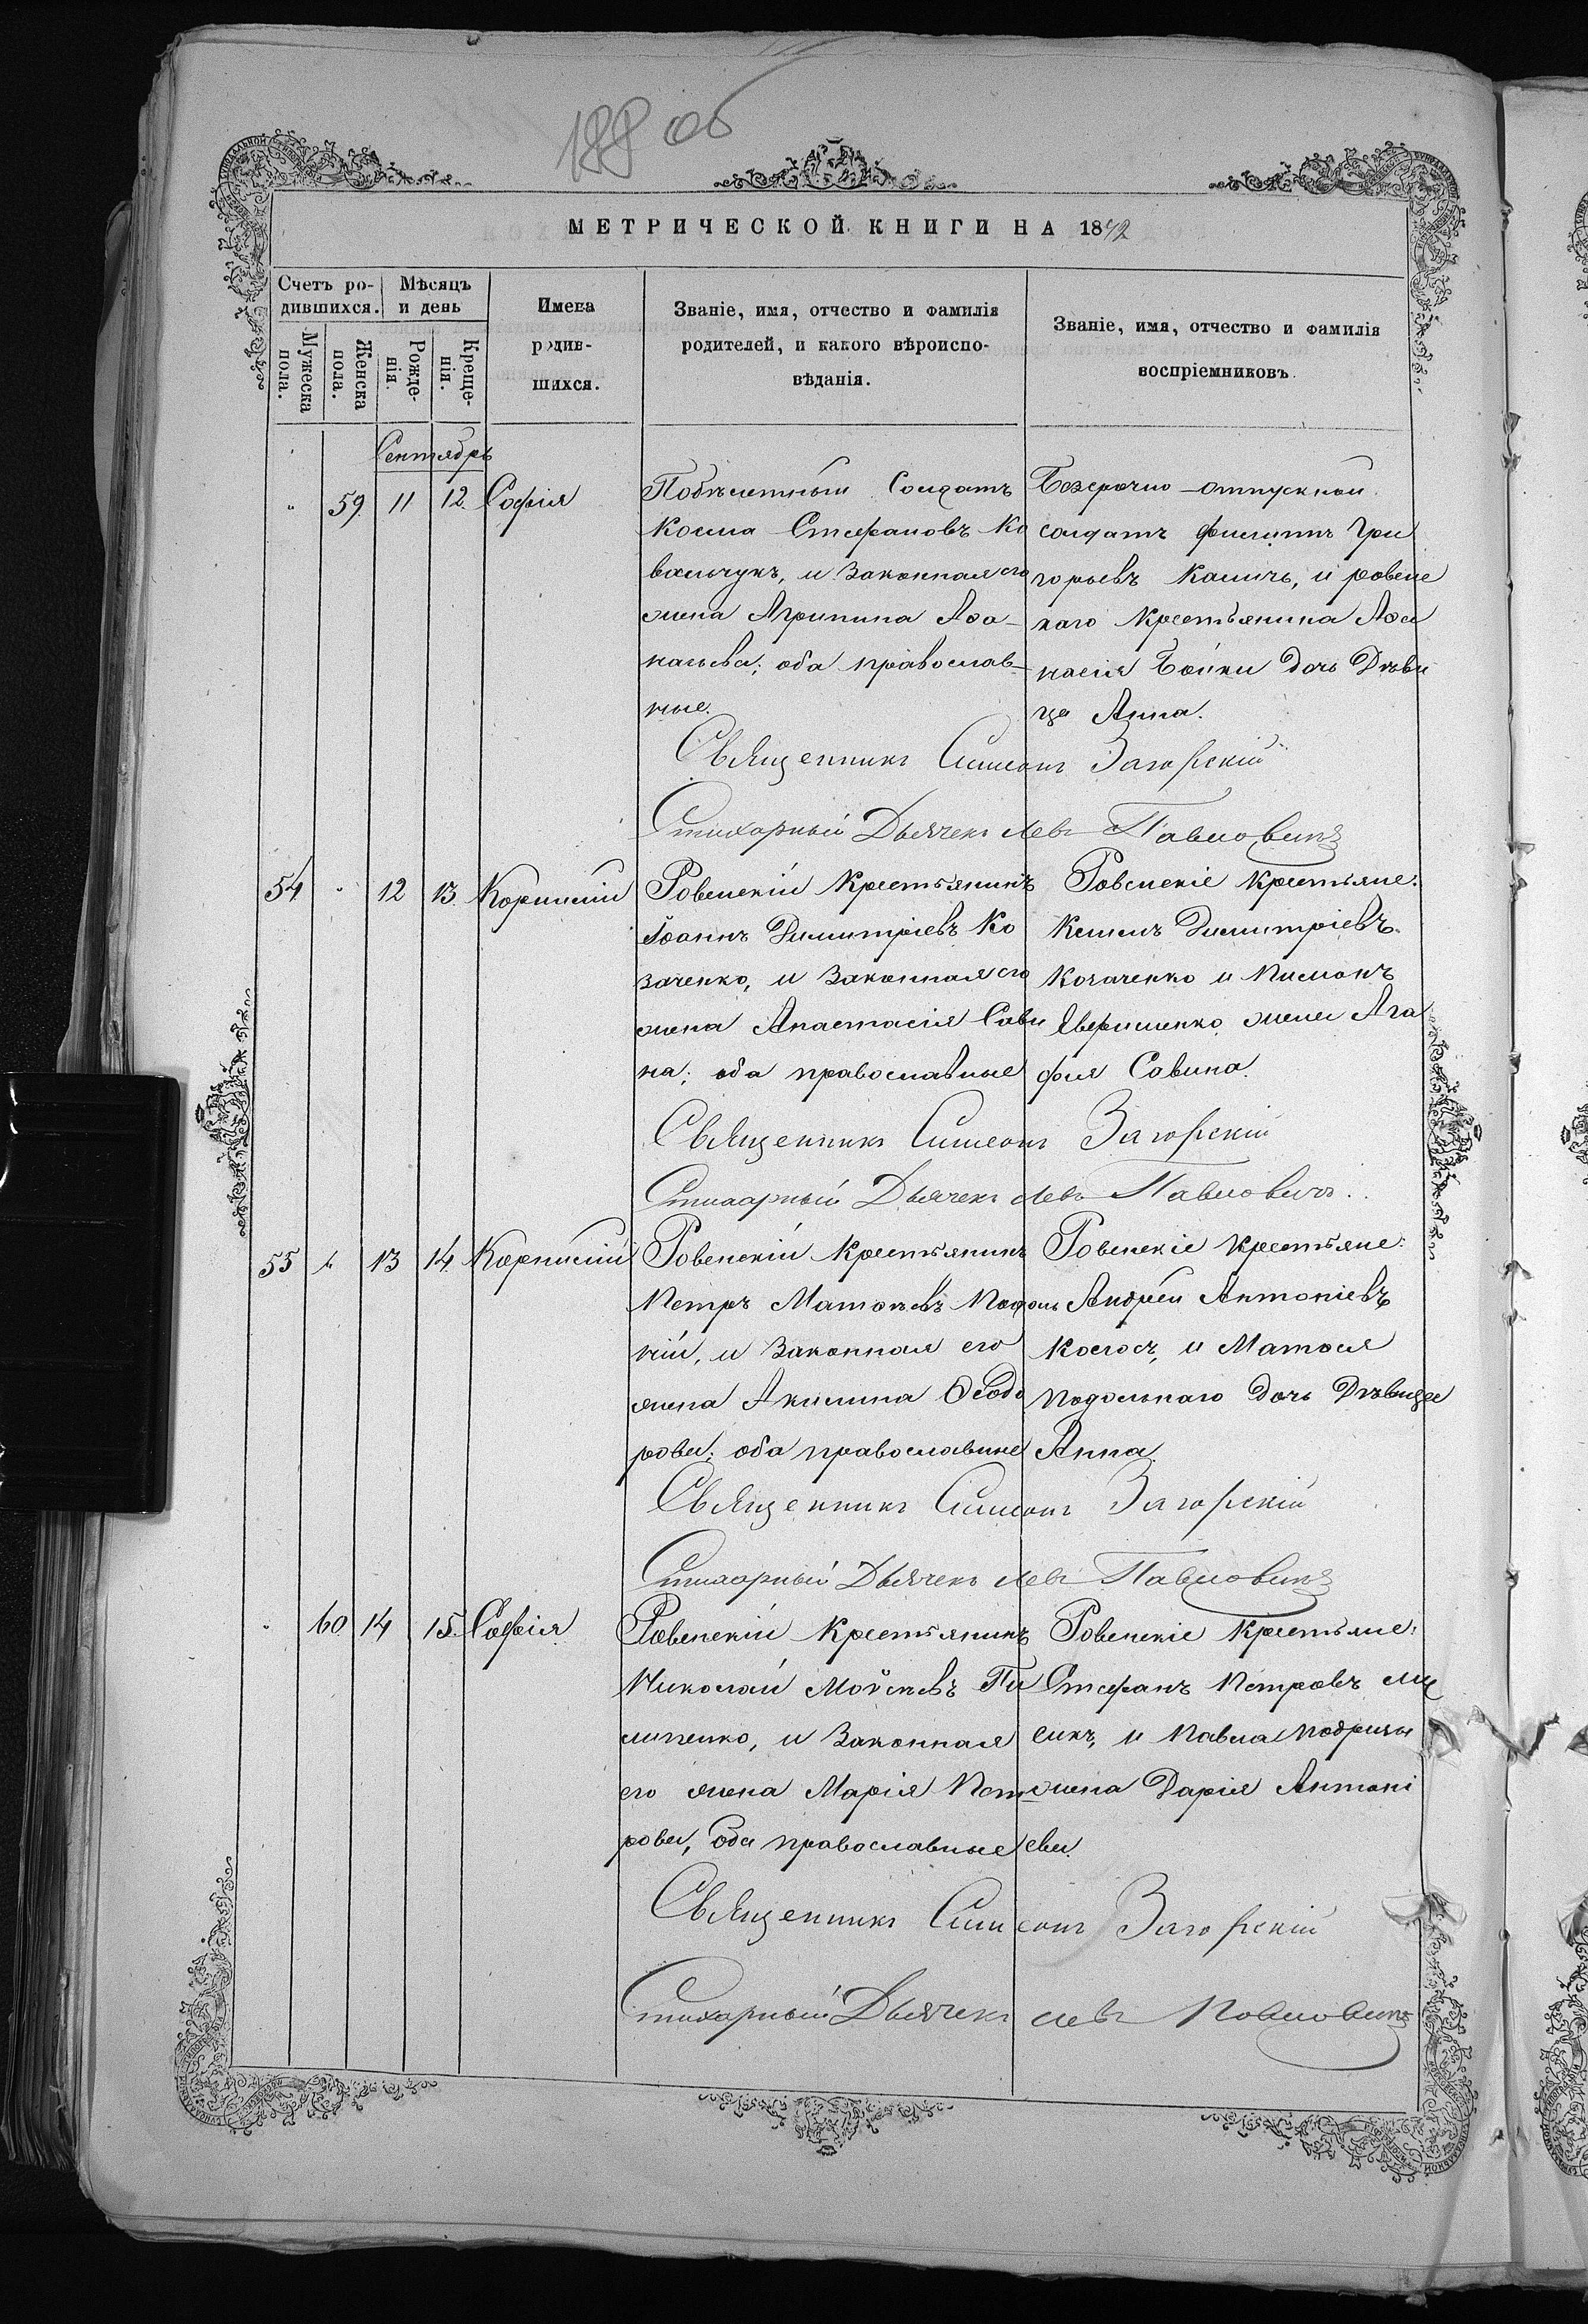 188 об
МЕТРИЧЕСКОЙ КНИГИ НА 1872
Счетъ ро-
дившихся.
Мѣсяцъ
и день
Имена
родив-
шихся.
Званіе, имя, отчество и фамилія
родителей, и какого вѣроиспо-
вѣданія.
Званіе, имя, отчество и фамилія
воспріемниковъ.
Мужеска
пола.
Женска
пола.
Рожде-
нія.
Креще-
нія.
Сентябрь
" 59 11 12 Софія
солдатъ
Косма Стефановъ Ко
вальчукъ, и законная его
жена Агрипина Аѳа-
насьева; оба православ-
ные.
Безсрочно-отпускной
солдатъ Филиппъ Гри
горьевъ Калишъ, и ровенс
каго крестьянина Аѳа
насія Бойки дочь дѣви
ца Анна.
Священникъ Симеонъ Загорскій
Стихарный Дьячекъ Левъ Павловичъ
54 " 12 13 Корнилій
Ровенскій крестьянинъ
Іоаннъ Димитріевъ Ко
заченко, и законная его
жена Анастасія Сави
на; оба православные
Ровенскіе крестьяне:
Димитріевъ
Козаченко и
жена Ага
фія Савина.
Священникъ Симеонъ Загорскій
Стихарный Дьячекъ Левъ Павловичъ.
55 " 13 14 Корнилій
Ровенскій крестьянинъ
Петръ Подоль
ній, и законная его
жена Акилина Ѳеодо
рова; оба православные
Ровенскіе крестьяне:
Андрей Антоніевъ
и Матѳея
Подольнаго дочь дѣвица
Анна.
Священникъ Симеонъ Загорскій
Стихарный Дьячекъ Левъ Павловичъ
" 60 14 15 Софія
Ровенскій крестьянинъ
Николай Мойсеевъ Пи
липенко, и законная
его жена Марія Пет
рова, оба православные
Ровенскіе крестьяне:
Стефанъ Петровъ
и Павла
жена Дарія Антоні
ева.
Священникъ Симеонъ Загорскій
Стихарный Дьячекъ Левъ Павловичъ